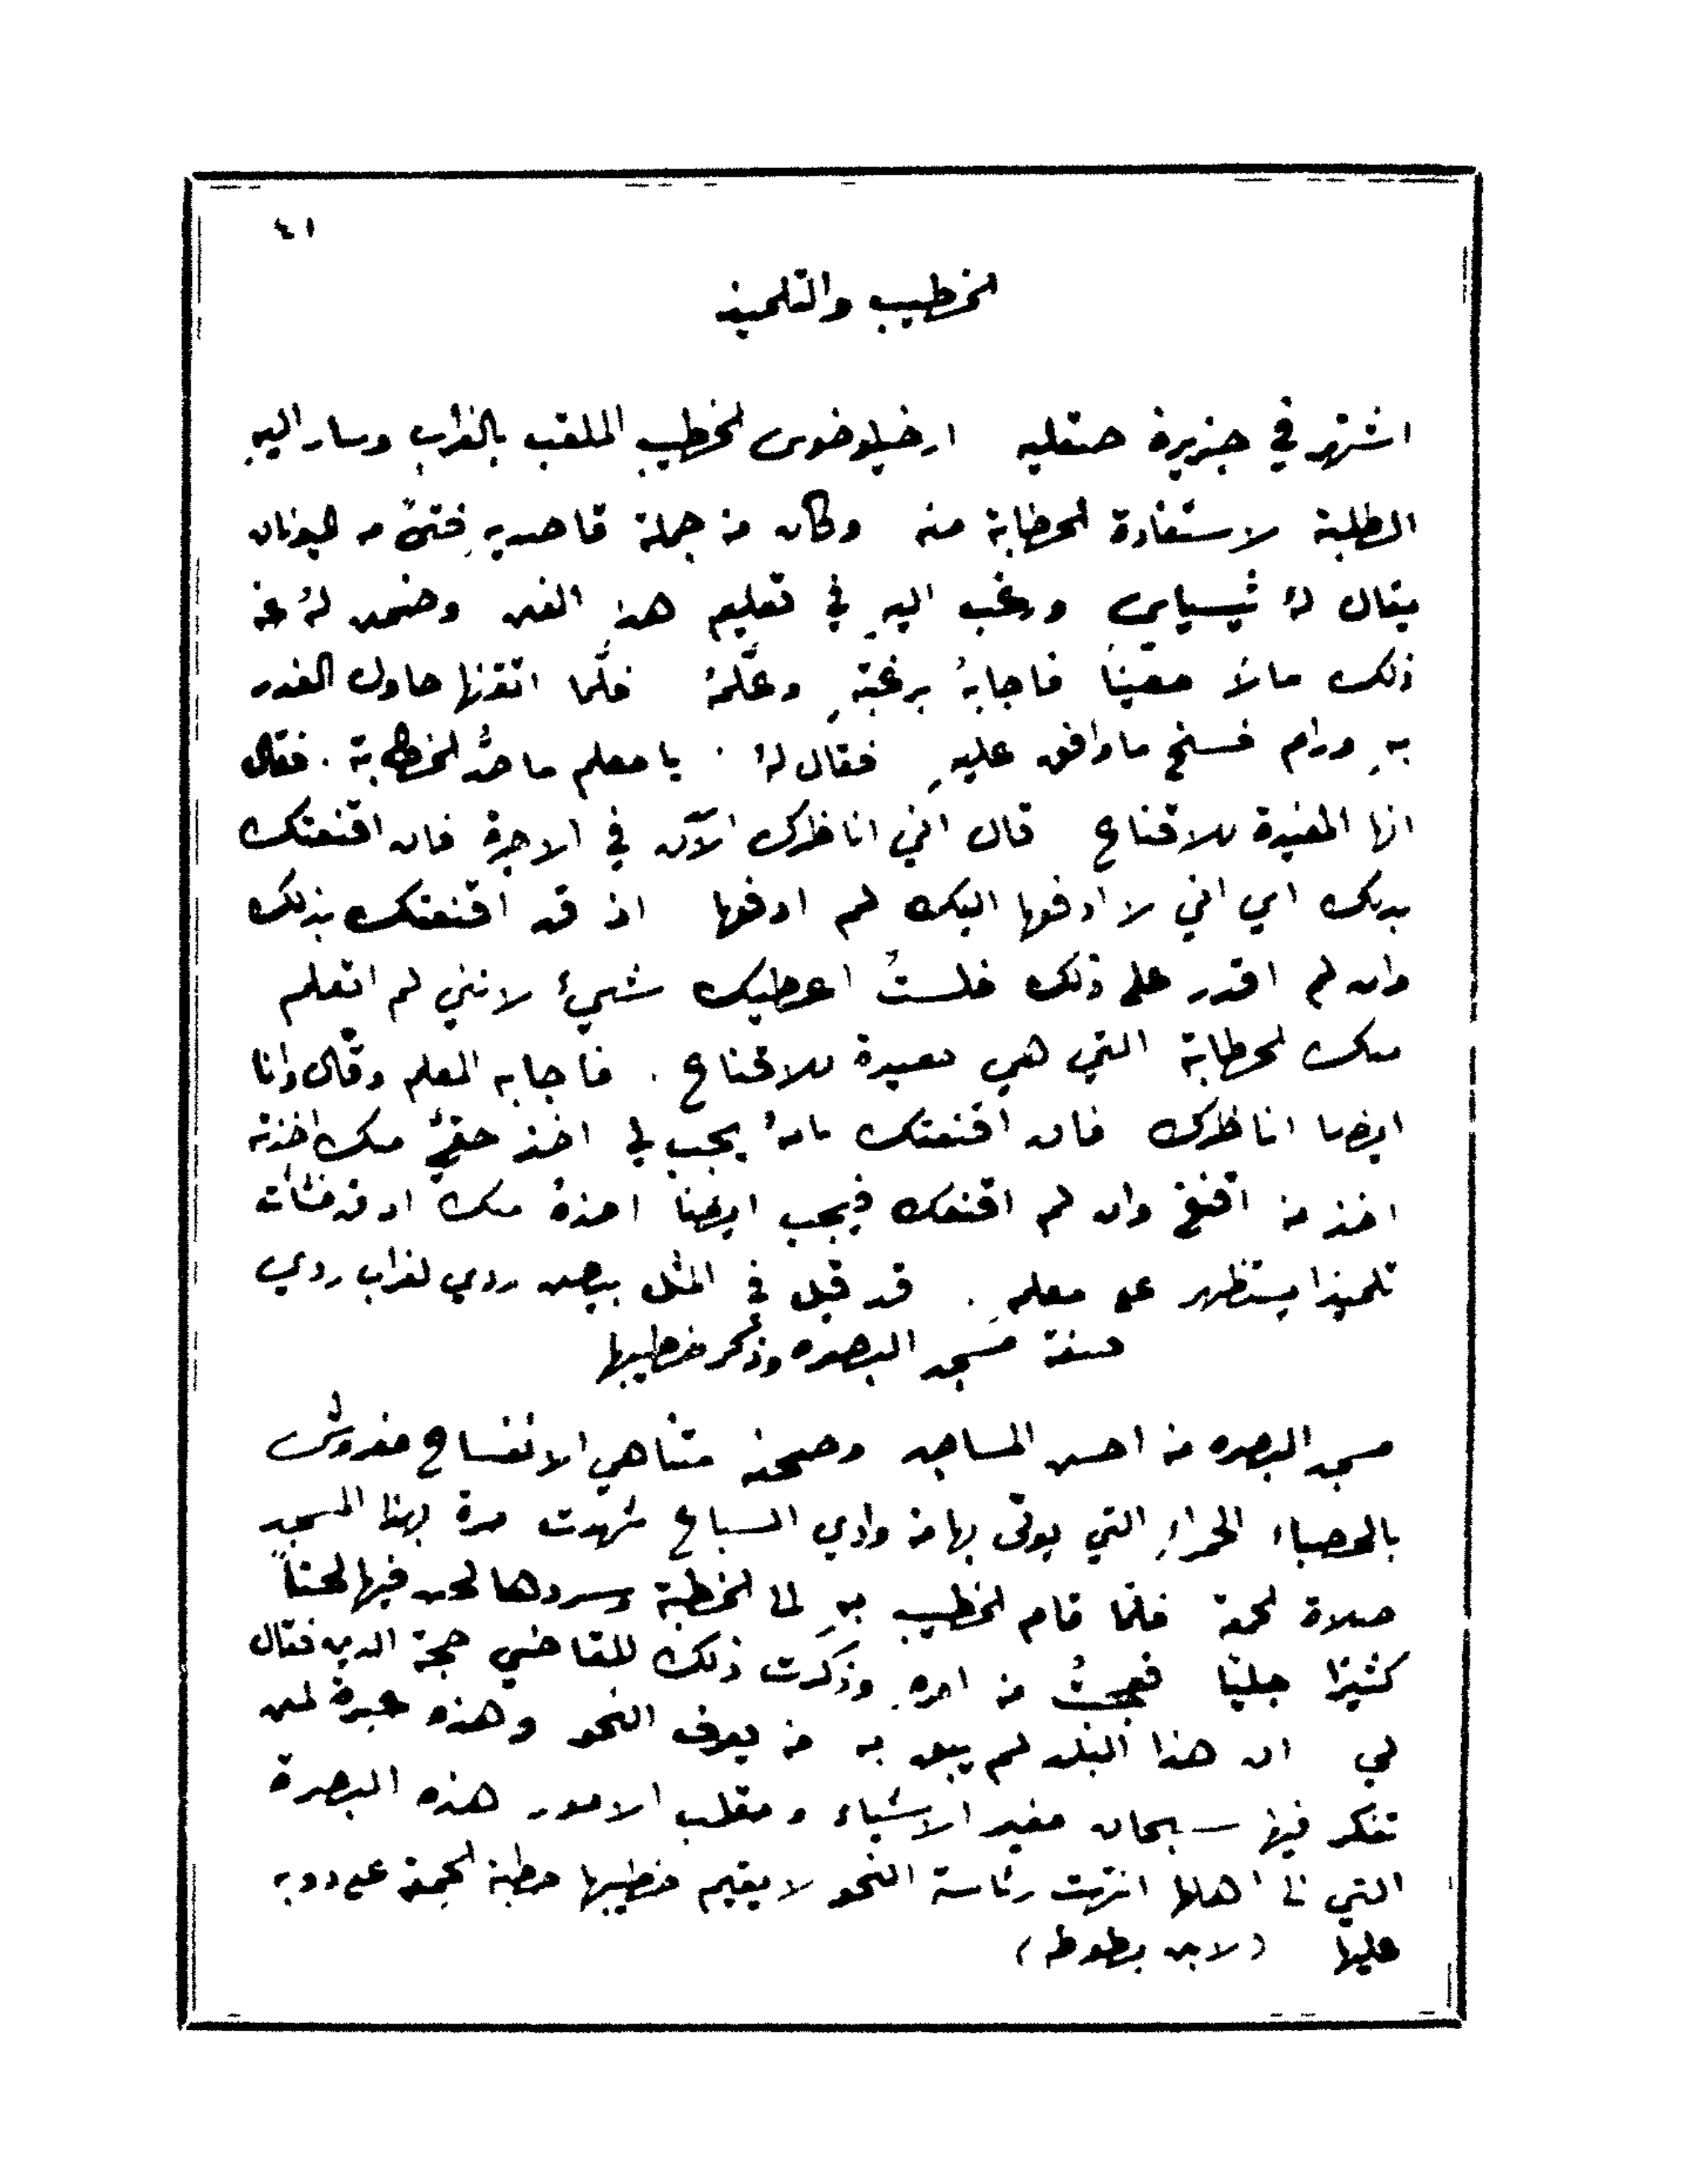 ٤١
الخطيب والتلميذ
اشتهر في جزيرة صقليه ارخيلوخوس الخطيب الملقب بالغراب وسار اليهِ
الطلبة لاستفادة الخطابة منه وكان من جملة قاصديهِ فتىً من اليونان
يقال لهُ ثيسياس ورغب اليهِ في تعليم هذهِ الفن وضمن لهُ عن
ذلك مالاً معيناً فاجابهُ برغبتهِ وعلَّمهُ فلَّما اتقنها حاول الغدر
بهِ ورام فسخ ما وافق عليهِ فقال لهُ . يا معلم ما حدُّ الخطابة . فقال
انها المفيدة للاقناع قال اني اناظرك الآن في الاجرة فان اقنعتك
بذلك اي اني لا ادفعها اليك لم ادفعها اذ قد اقنعتك بذلك
وان لم اقدر على ذلك فلستُ اعطيك شيءً لانني لم اتعلم
منك الخطابة التي هي مفيدة للاقناع . فاجابه المعلم وقال وانا
ايضا اناظرك فان اقنعتك بانهُ يجب لي اخذ حقي منك اخذته
اخذ من اقنع وان لم اقنعك فيجب ايضاً اخذهُ منك اذ قد نشأت
تلميذا يستظهر على معلمهِ . قد قيل في المثل بيض ردي لغراب ردي
صفة مسجد البصره وذكر خطيبها
مسجد البصره من احسن المساجد وصحنه متناهي الانفساح مفروش
بالحصباء الحمراءِ التي يوتى بها من وادي السباع شهدت مرة بهذا المسجد
صلاة الجمعة فلما قام الخطيب بهِ الى الخطبة وسردها لحن فيها لحناً
كثيرًا جليًا فعجبتُ من امرهِ وذكرت ذلك للقاضي حجة الدين فقال
لي ان هذا البلد لم يبق به من يعرف النحو وهذه عبرة لمن
تفكر فيها سبحان مغير الاشياء ومقلب الامور هذه البصرة
التي الى اهلها انتهت رئاسة النحو لا يقيم خطيبها خطبة الجمعة على دوبه
عليها (لابن بطوطه)